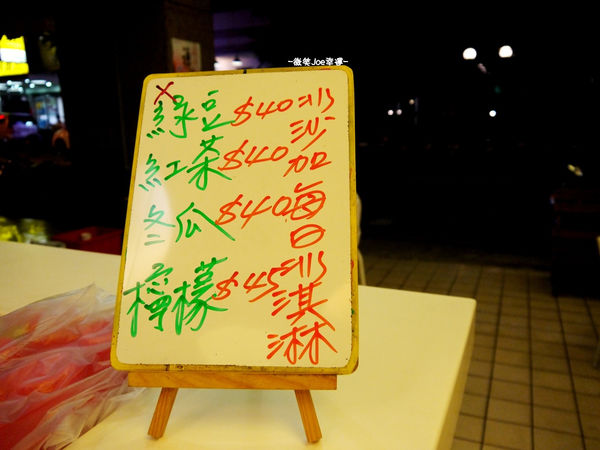 ~微笑Joe幸導~
x
綠豆$40
紅茶$40
冬瓜$40
檸檬$45
冰沙加每日冰淇淋